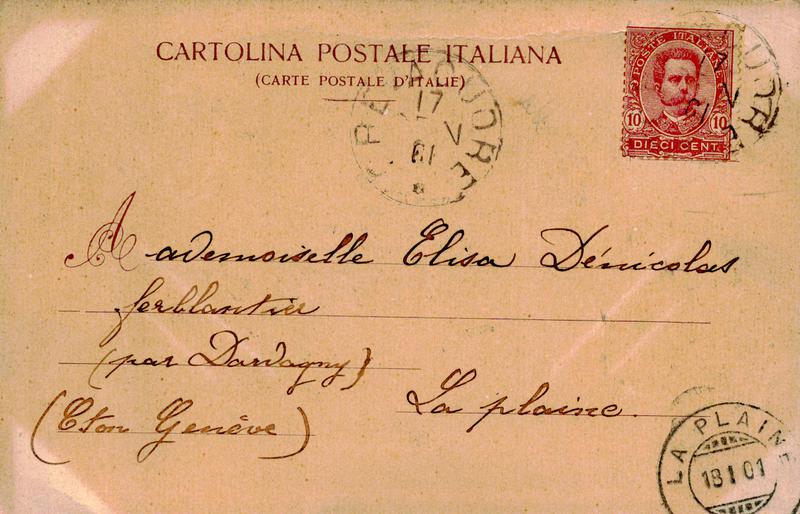 CARTOLINA POSTALE ITALIANA
(CARTE POSTALE D'ITALIE)
POSTE ITALIANE
10 10
DIECI CENT.
17
V
Mademoiselle Elisa Dénicolas
ferblantier
(par Dardagny)
La plaine.
(Cton Genève)
LA PLAINE
18 I 01